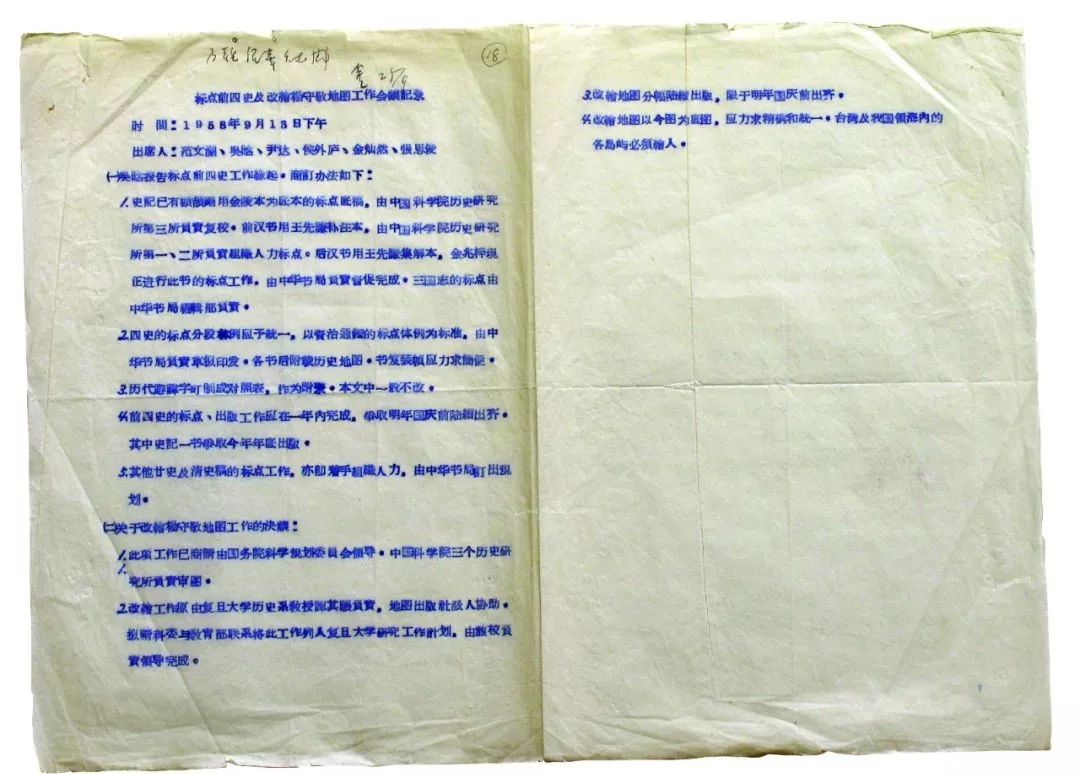 18
25/9
标点前四史及改繪楊守敬地图工作会議記录
时　間：1958年9月13日下午
出席人：范文瀾、吳晗、尹达、侯外庐、金灿然、張思俊
㈠吳晗报告标点前四史工作緣起。商訂办法如下：
1.史記已有顧頡剛用金陵本为底本的标点底稿，由中国科学院历史研究
所第三所負責复校。前汉书用王先謙补注本，由中国科学院历史研究
所第一、二所負責組織人力标点。后汉书用王先謙集解本，金兆梓現
正进行此书的标点工作，由中华书局負責督促完成。三国志的标点由
中华书局編輯部負責。
2.四史的标点分段体例应予統一，以資治通鑑的标点体例为标准，由中
华书局負責草拟印发。各书后附載历史地图。书笈裝幀应力求簡便。
3.历代避諱字可制成对照表，作为附录。本文中一般不改。
4.前四史的标点、出版工作应在一年內完成，爭取明年国庆前陆續出齐。
其中史記一书爭取今年年底出版。
5.其他廿史及清史稿的标点工作，亦即着手組織人力，由中华书局訂出規
划。
㈡关于改繪楊守敬地图工作的决議：
1.此項工作已商請由国务院科学規划委員会領导。中国科学院三个历史研
究所負責审图。
2.改繪工作原由复旦大学历史系教授譚其驤負責，地图出版社派人协助。
拟請科委与教育部联系将此工作列入复旦大学研究工作計划，由該校負
責領导完成。
3.改繪地图分幅陆續出版，限于明年国庆前出齐。
4.改繪地图以今图为底图，应力求精确和統一。台灣及我国領海內的
各島屿必須繪入。